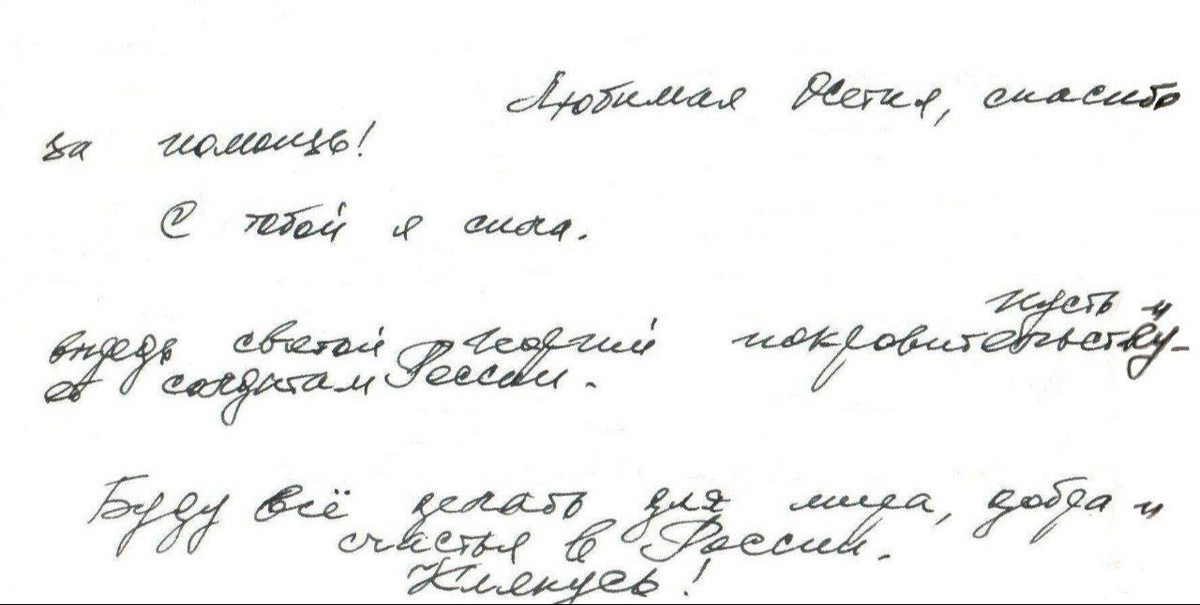 Любимая Осетия, спасибо
за помощь!
С тобой я сила.
Пусть и
впредь святой Георгий покровительству-
ет солдатам России.
Буду всё делать для мира, добра и
счастья в России.
Клянусь!